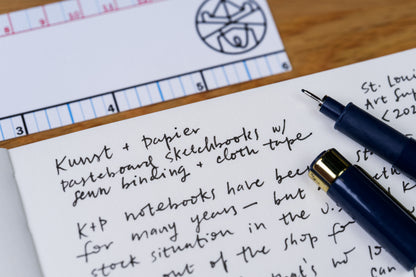 8 9 10 11 12 13
3 4 5 6
Kunst + Papier
pasteboard sketchbooks w/
sewn binding + cloth tape
K+P notebooks have bee
for many years — but
stock situation in the U.
out of the shop fo
s no lo
St. Loui
Art Sup
< 202
st
eth
K